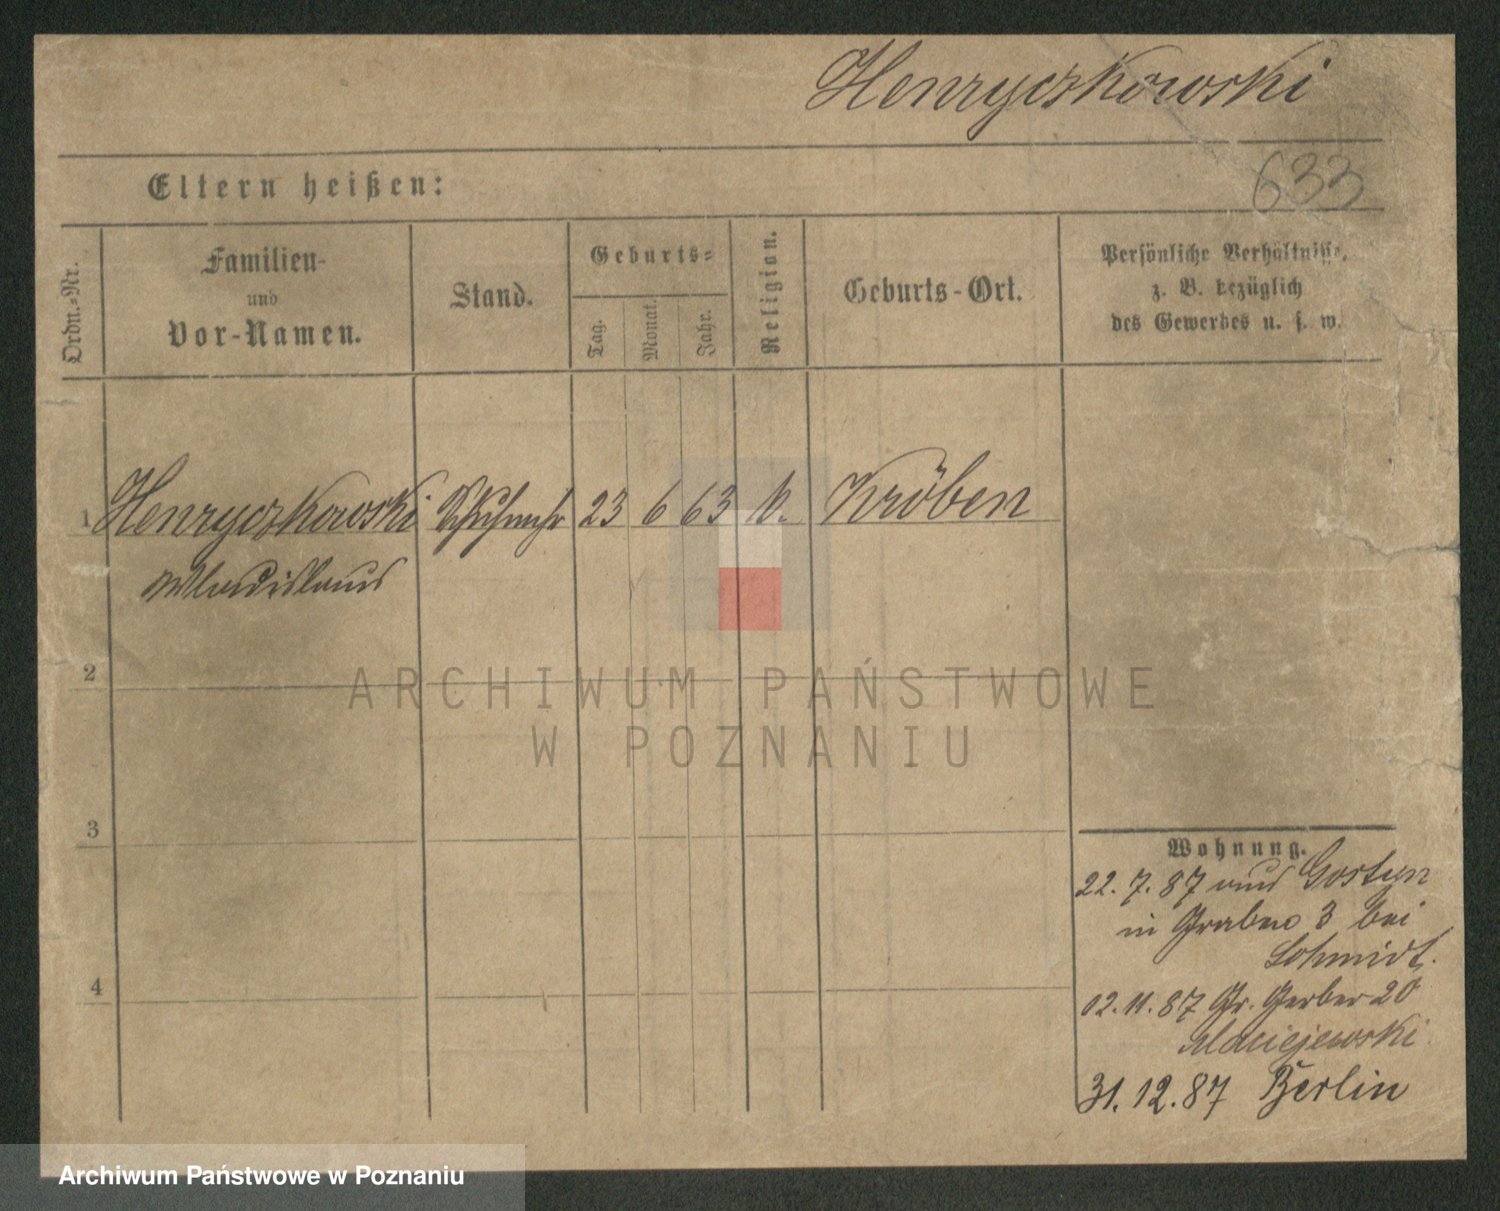 Henryczkowski
633
Eltern heißen:
Ordn.-Nr.
Familien-
und
Vor-Namen.
Stand.
Geburts-
Tag.
Monat.
Jahr.
Religion.
Geburts-Ort.
Persönliche Verhältnisse,
z. B. bezüglich
des Gewerbes u. s. w.
1 Henryczkowski 23 6 63 k. Kröben
Wladislaus
2
3
4
Wohnung.
22. 7. 87 aus Gostyn
in Graben 3 bei
Schmidt.
02. 11. 87 Gr. Gerber 20
Maciejewski
31. 12. 87 Berlin
ARCHIWUM PAŃSTWOWE
W POZNANIU
Archiwum Państwowe w Poznaniu